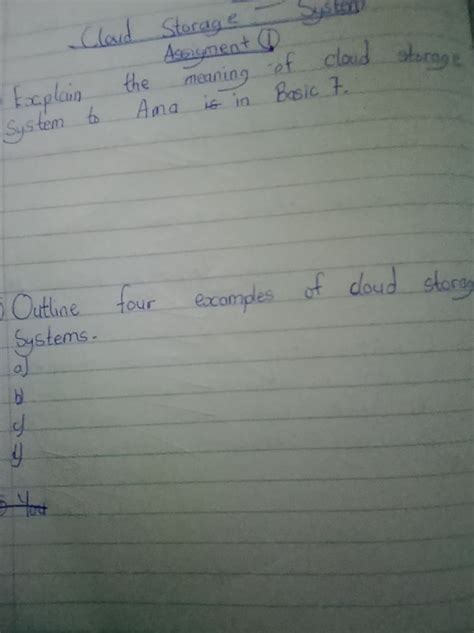 Cloud Storage - System
Assigment ①
Explain the meaning of cloud storage
System to Ama is in Basic 7.
Outline four examples of cloud storag
Systems.
a)
b)
c)
d)
You